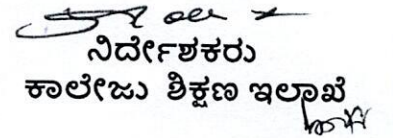 ನಿರ್ದೇಶಕರು
ಕಾಲೇಜು ಶಿಕ್ಷಣ ಇಲಾಖೆ